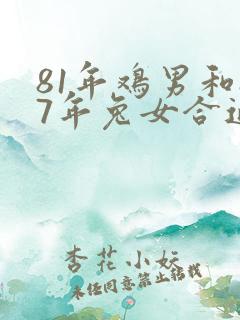 81年鸡男和
7年兔女合适
杏花小妖
未经同意禁止转载